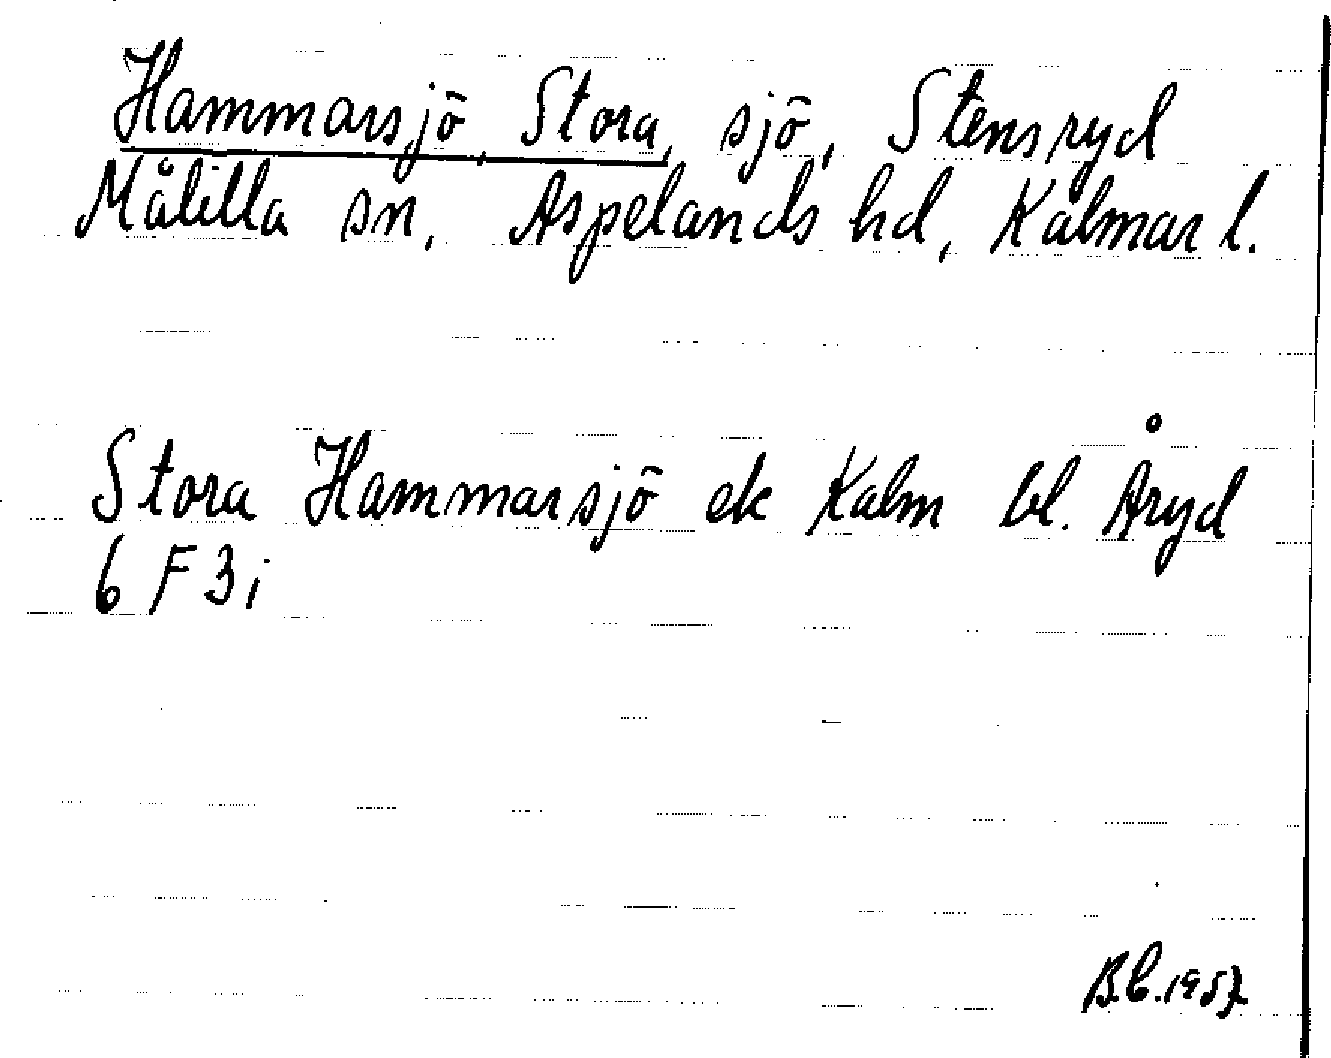 Hammarsjö, Stora, sjö, Stensryd
Målilla sn, Aspelands hd, Kalmar l.
Stora Hammarsjö ek Kalm bl. Åryd
6 F 3 i
B.C. 1957